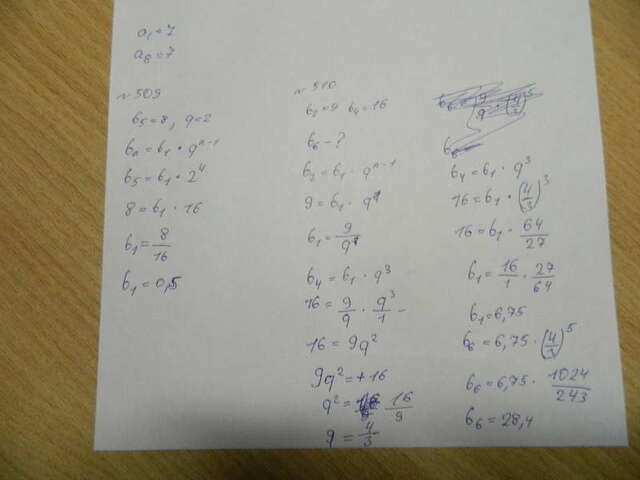 a₁=7
a₈=7
№509
b₅=8, q=2
bₙ=b₁•qⁿ⁻¹
b₅=b₁•2⁴
8=b₁·16
b₁=8/16
b₁=0,5
№510
b₂=9 b₄=16
b₆-?
b₂=b₁·qⁿ⁻¹
9=b₁·q¹
b₁=9/q¹
b₄=b₁·q³
16=9/q·q³/1
16=9q²
9q²=+16
q²=16/9
q=4/3
b₆
b₄=b₁·q³
16=b₁·(4/3)³
16=b₁·64/27
b₁=16/1·27/64
b₁=6,75
b₆=6,75·(4/3)⁵
b₆=6,75·1024/243
b₆=28,4